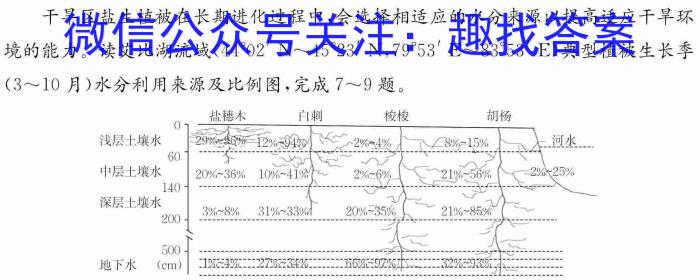 干旱区盐生植被在长期进化过程中,会选择相适应的水分来源以提高适应干旱环
微信公众号关注:趣找答案
境的能力。读艾比湖流域典型植被生长季
(3~10月)水分利用来源及比例图,完成7~9题。
盐穗木 白刺 梭梭 胡杨
0
浅层土壤水 12%~94% 2%~4% 8%~15% 河水
60
中层土壤水 20%~36% 10%~41% 2%~6% 21%~56% 2%~25%
140
深层土壤水 3%~8% 31%~33% 20%~35% 21%~85%
200
500
地下水 (cm) 1%~4% 27%~34% 66%~97% 32%~93%